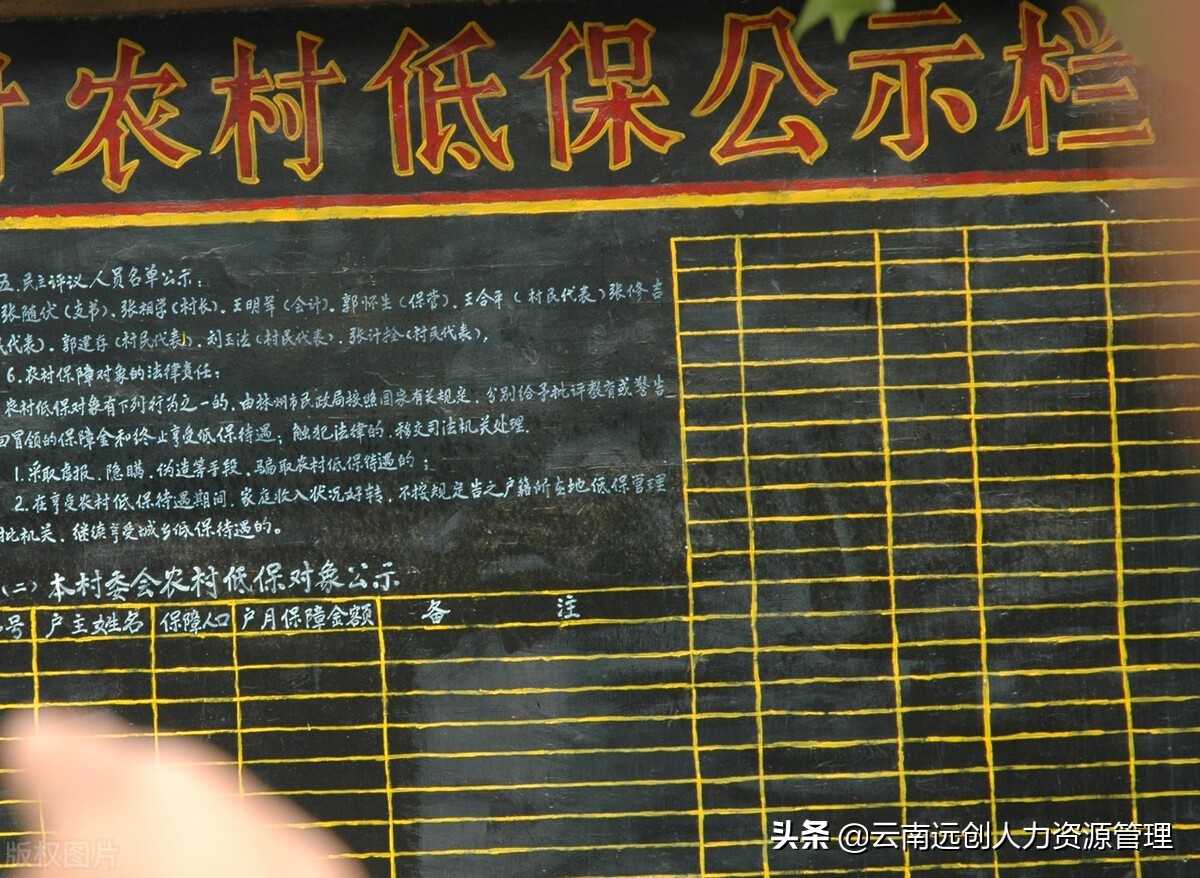 村农村低保公示栏
五.民主评议人员名单公示:
张随伏(支书).张相学(村长).王明军(会计).郭怀生(保管).王合平(村民代表)张修吉
代表).郭建存(村民代表).刘玉法(村民代表).张计拴(村民代表),
6.农村保障对象的法律责任:
农村低保对象有下列行为之一的.由林州市民政局按照国家有关规定.分别给予批评教育或警告
回冒领的保障金和终止享受低保待遇;触犯法律的.移交司法机关处理.
1.采取虚报.隐瞒.伪造等手段.骗取农村低保待遇的;
2.在享受农村低保待遇期间.家庭收入状况好转.不按规定告之户籍所在地低保管理
批机关.继续享受城乡低保待遇的。
(二)本村委会农村低保对象公示
号 户主姓名 保障人口 户月保障金额 备 注
头条 @云南远创人力资源管理
版权图片